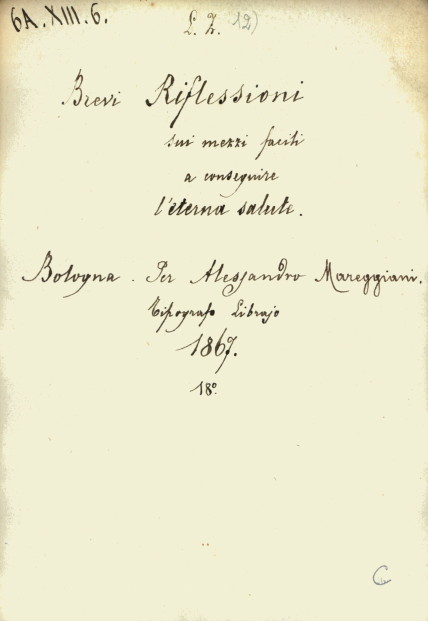 6A. XIII. 6.
L. Z. 12)
Brevi Riflessioni
sui mezzi facili
a conseguire
l'eterna salute.
Bologna. Per Alessandro Mareggiani.
Tipografo Librajo
1867.
18°.
C